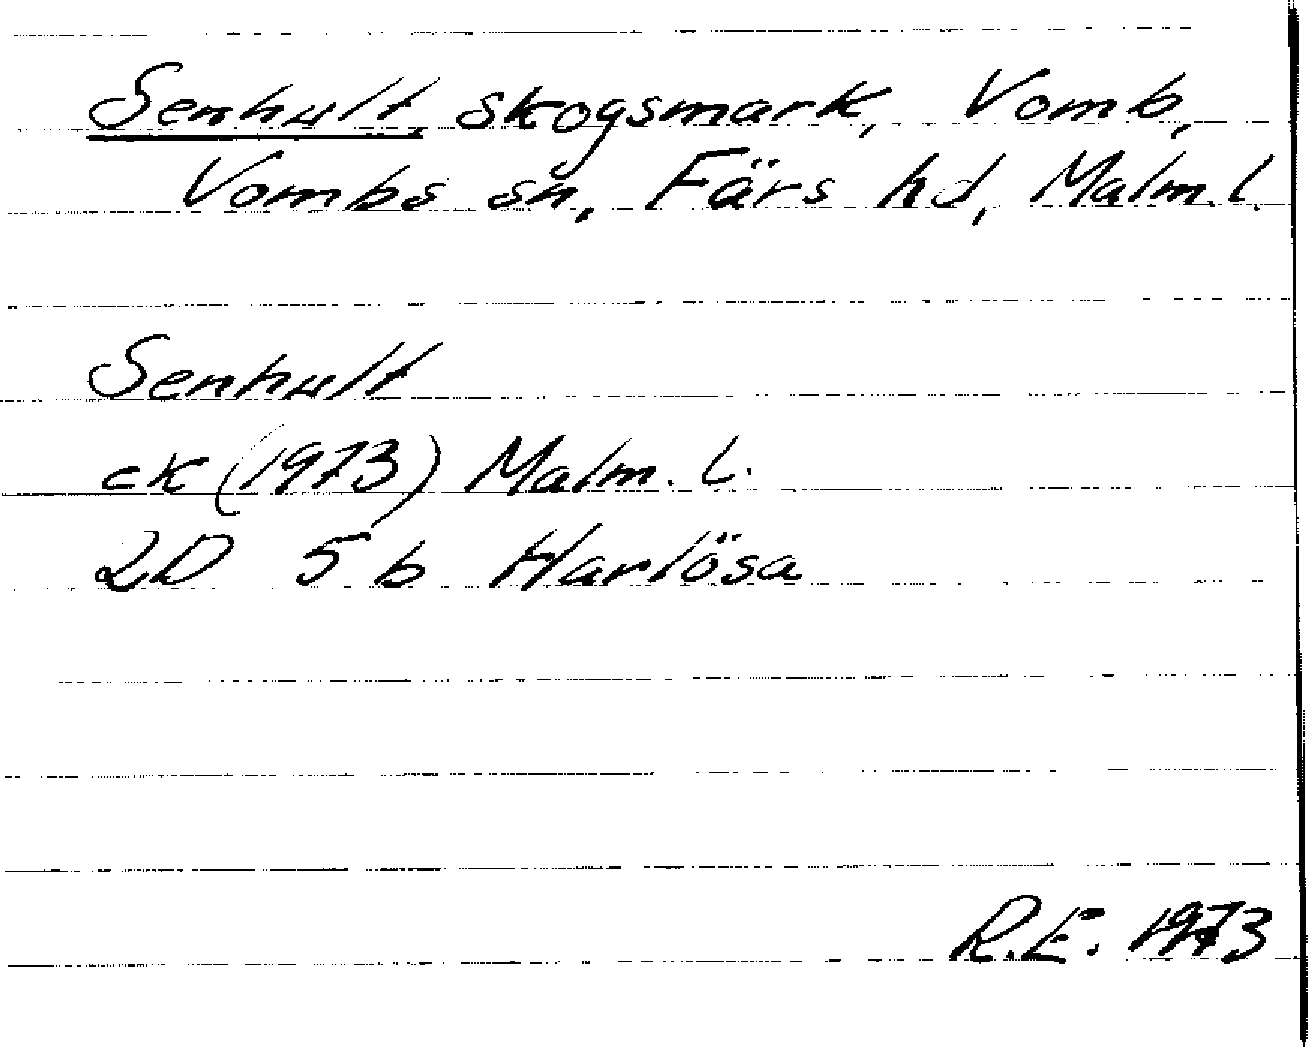 Senhult, skogsmark, Vomb,
Vombs sn, Färs hd, Malm. l.
Senhult
ek (1973) Malm. l.
2D 5 b Harlösa
R.E. 1973